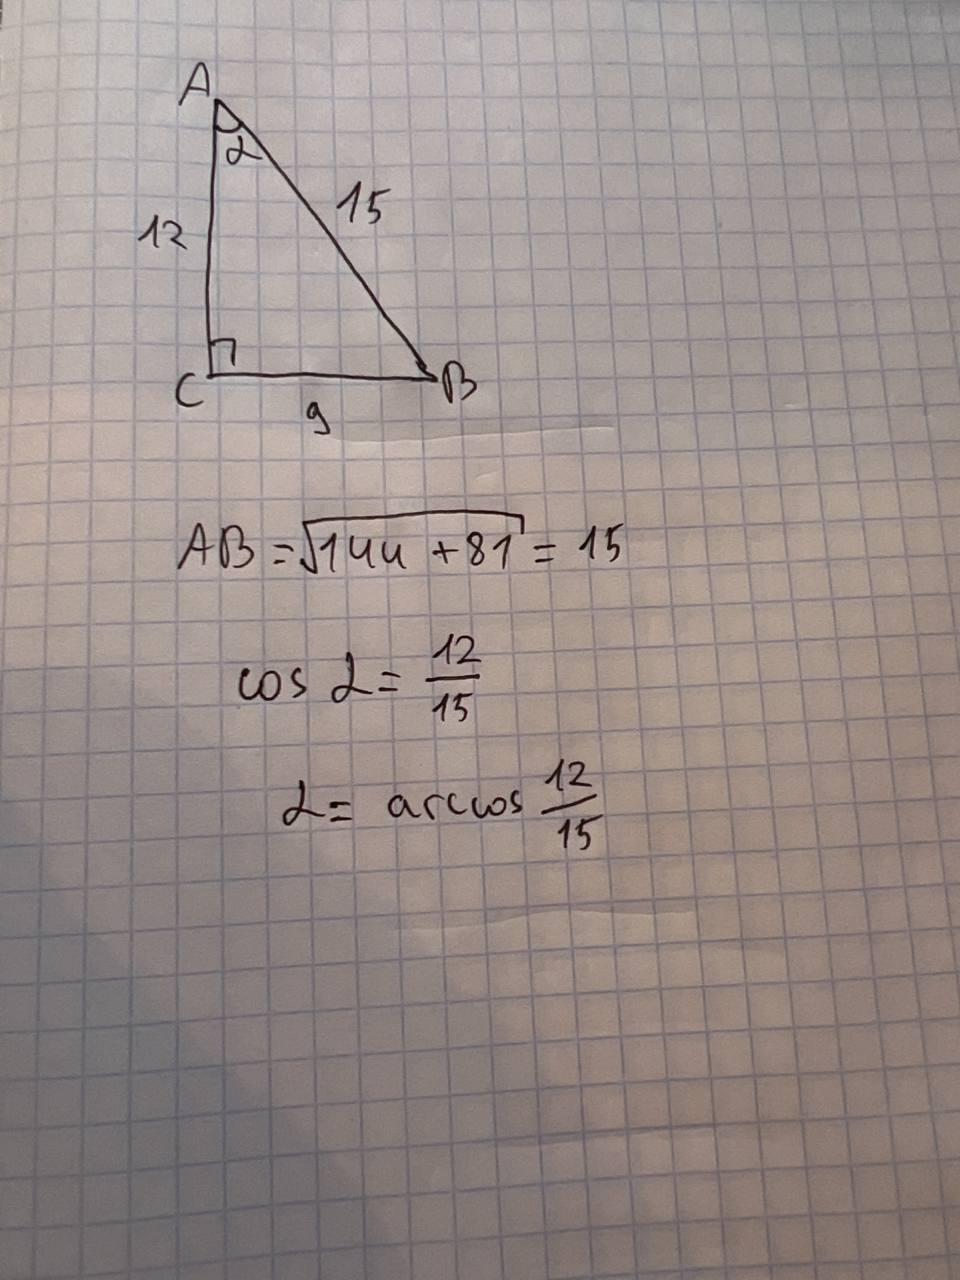 A
α
15
12
C
B
9
AB = √144 + 81 = 15
cos α = 12/15
α = arccos 12/15